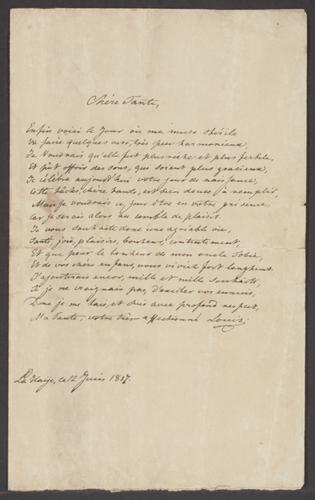 Chère Tante,
Enfin voici le jour où ma muse stérile
Va faire quelques vers, très peu harmonieux,
Je voudrais qu'elle fut plus riche et plus fertile,
Et pût offrir des sons, qui soient plus gracieux,
Je célèbre aujourd'hui votre jour de naissance,
Cette tâche, chère tante, est bien douce à remplir,
Mais je voudrais ce jour d'être en votre présence
Car je serais alors au comble de plaisir.
Je vous souhaite donc une agréable vie,
Santé, joie, plaisirs, bonheur, contentement,
Et que pour le bonheur de mon oncle Tobie,
Et de vos chers enfans, vous viviez fort longtems.
J'ajouterais encor, mille et mille souhaits,
Si je ne craignais pas, d'exciter vos ennuis,
Donc je me tais, et suis avec profond respect,
Ma Tante, votre très affectionné Louis.
La Haye, ce 12 Juin 1817.